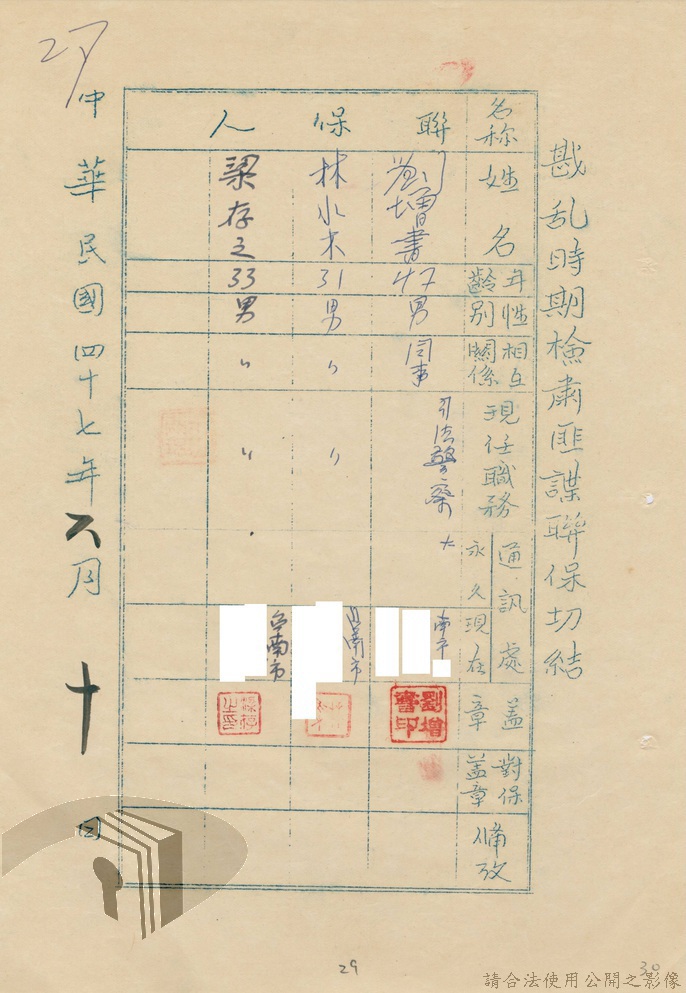 戡乱時期檢肅匪諜聯保切結
名称 姓名 年齡 性別 相互關係 現任職務 通訊處 永久 現在 盖章 對保盖章 備攷
聯保人
劉增書 47 男 同事 司法警察 南市 劉增書印
林水木 31 男 〃 〃 台南市
梁存之 33 男 〃 〃 台南市 梁存之印
中華民國四十七年六月十日
27
29
30
請合法使用公開之影像